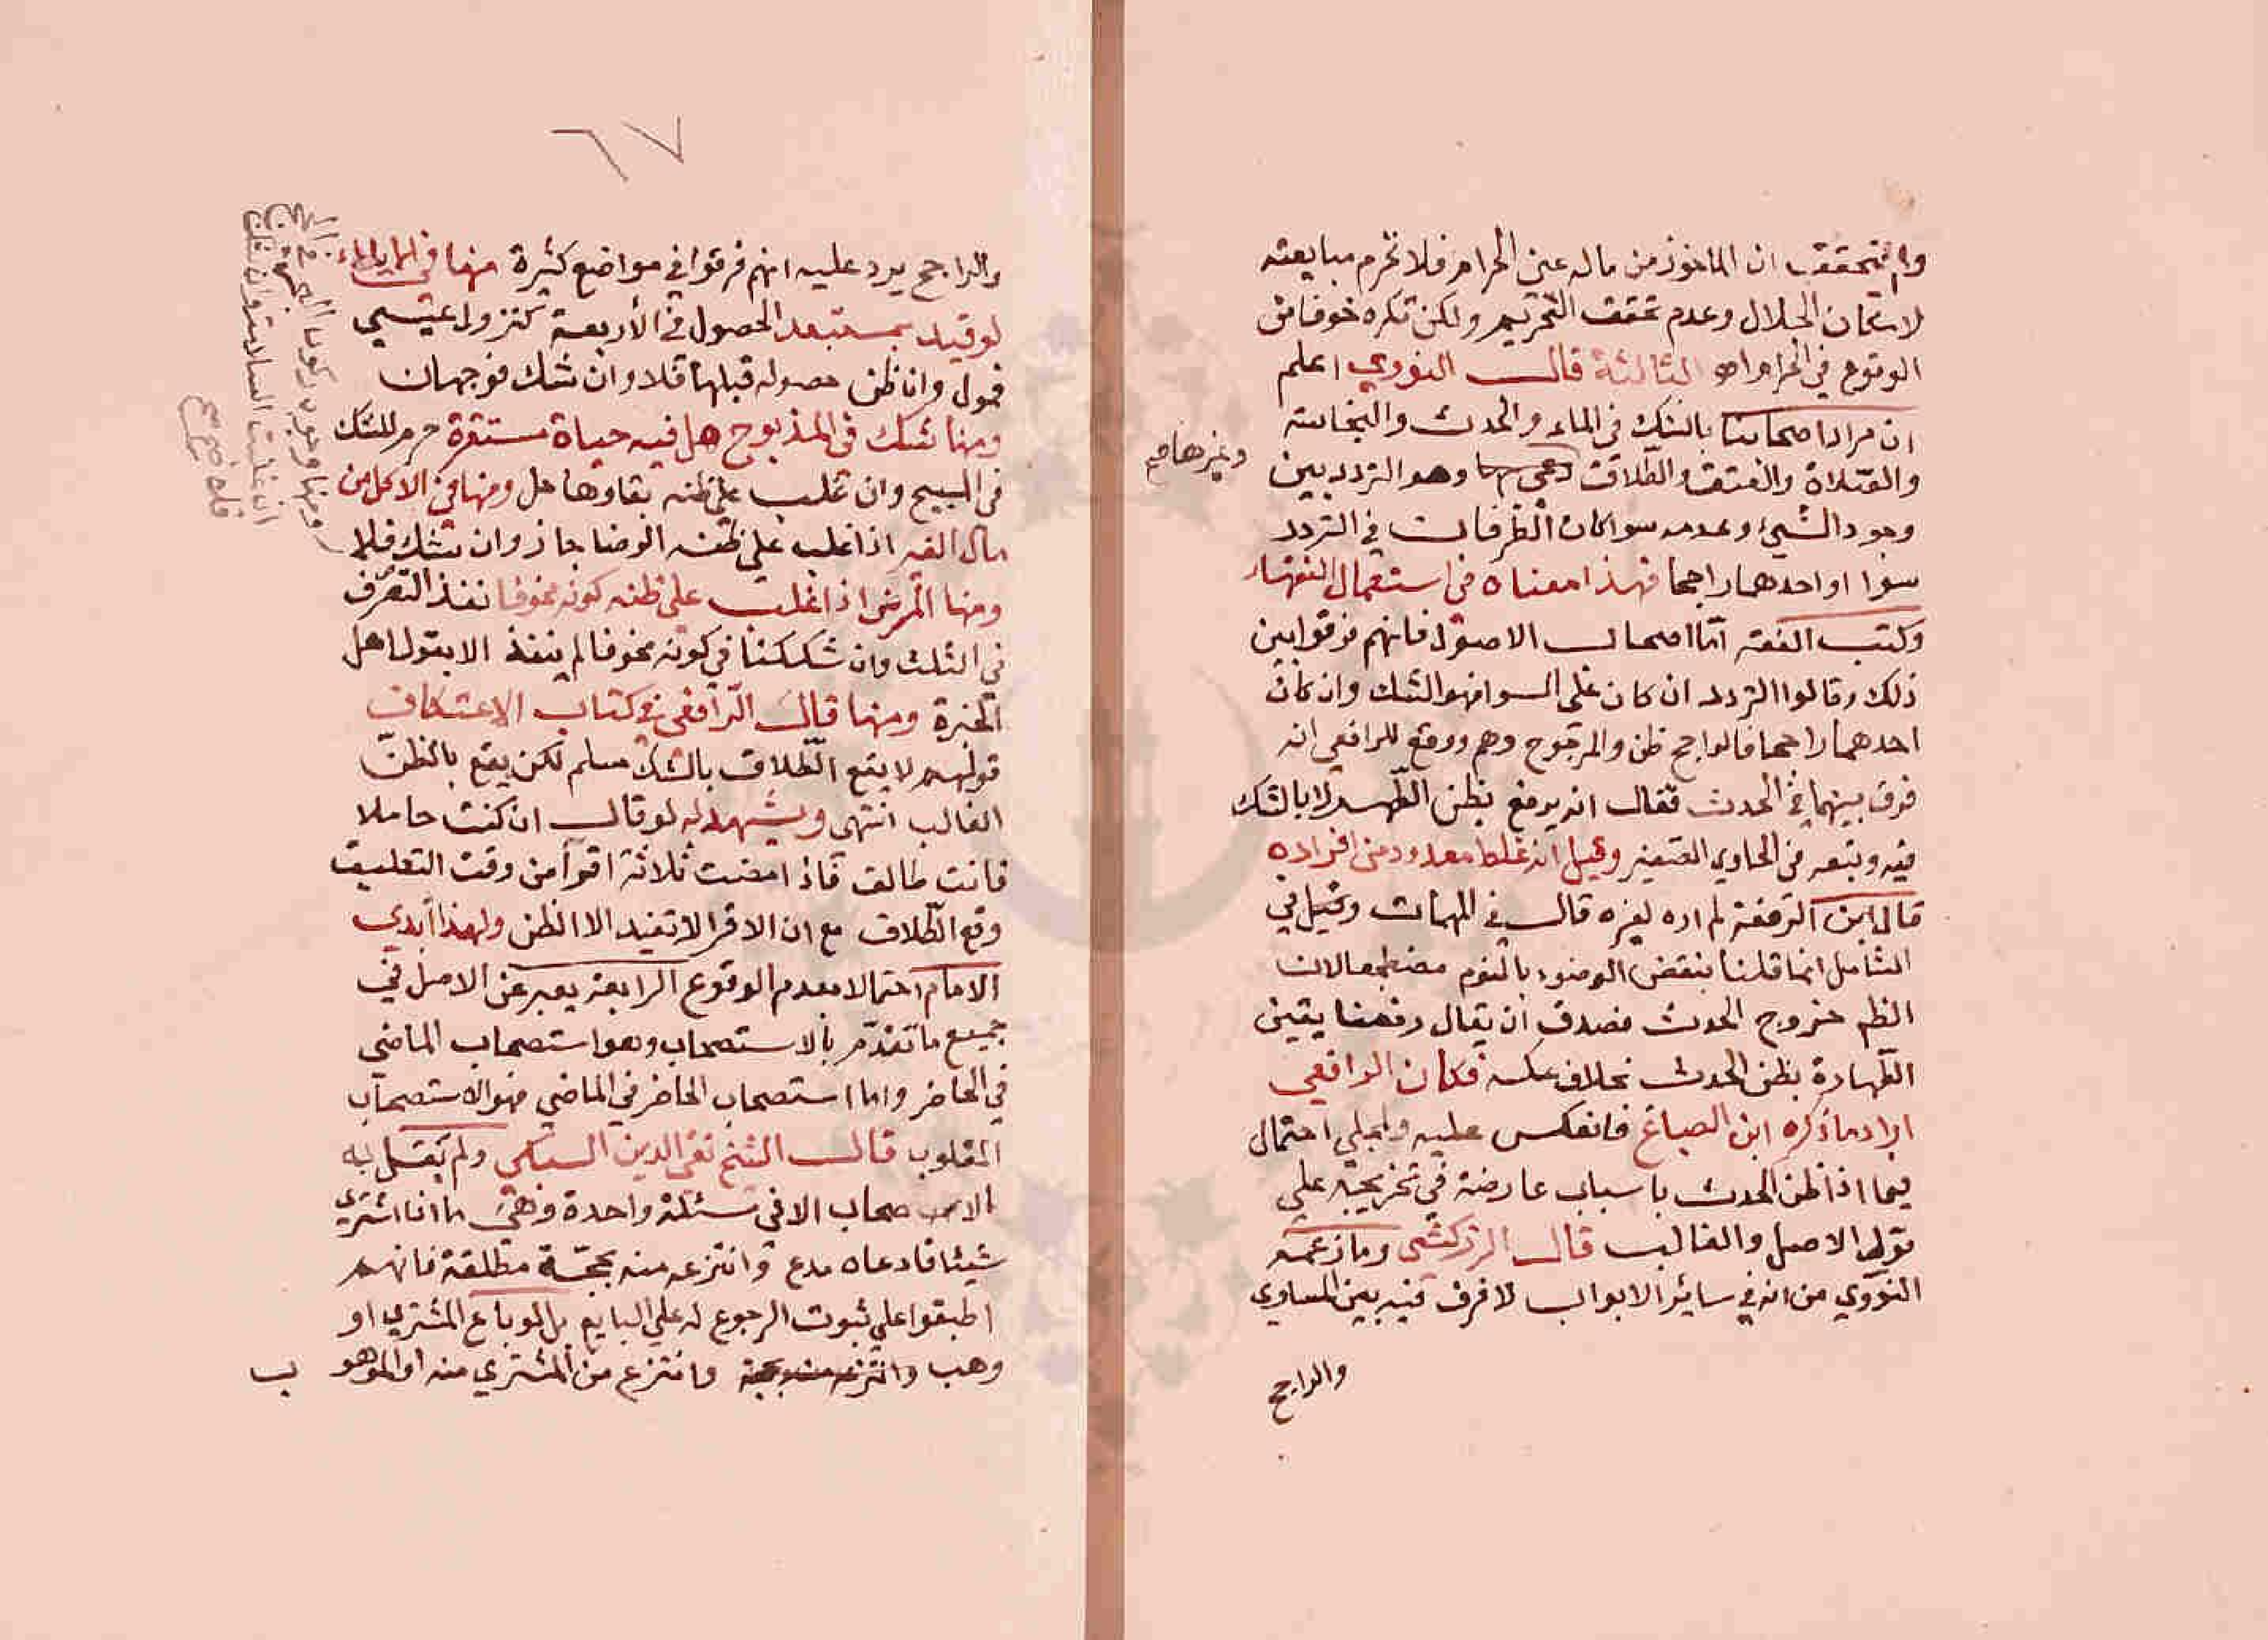 ولم يتحقق ان الماخوذ من ماله عين الحرام فلا تحرم مبايعته
لامكان الحلال وعدم تحقق التحريم ولكن تكره خوفا من
الوقوع في الحرام اهـ الثالثة قال النووي اعلم
ان مراد اصحابنا بالشك في الماء والحدث والنجاسة
والصلاة والعتق والطلاق وغيرها وهو التردد بين
وغيرها صح
وجود الشيئ وعدمه سوا كان الطرفان في التردد
سوا او احدهما راجحا فهذا معناه في استعمال الفقهاء
وكتب الفقه امّا اصحاب الاصول فانهم فرقوا بين
ذلك وقالوا التردد ان كان على السوا فهو الشك وان كان
احدهما راجحا فالراجح ظن والمرجوح وهم ووقع للرافعي انه
فرق بينهما في الحدث فقال انه يرفع بظن الطهر لا بالشك
فيه وتبعه في الحاوي الصغير وقيل انه غلط معدود من افراده
قال ابن الرفعة لم اره لغيره قال في المهمات وقيل في
الشامل انما قلنا بنقض الوضوء بالنوم مضطجعا لان
الظم خروج الحدث فصدق ان يقال رفعنا يقين
الطهارة بظن الحدث بخلاف عكسه فكان الرافعي
اراد ما ذكره ابن الصباغ فانعكس عليه ولمجلي احتمال
فيما اذا ظن الحدث باسباب عارضة في تخريجه على
قولي الاصل والغالب قال الزركشي وما زعمه
النووي من انه في سائر الابواب لا فرق فيه بين المساوي
والراجح
٦٧
والراجح يرد عليه انهم فرقوا في مواضع كثيرة منها في الايلاء
لو قيد بمستبعد الحصول في الأربعة كنزول عيسى
فمول وان ظن حصوله قبلها فلا وان شك فوجهان
ومنها شك في المذبوح هل فيه حياة مستقرة حرم للشك
في المبيح وان غلب على ظنه بقاوها حل ومنها في الاكل من
مال الغير اذا غلب على ظنه الرضا جاز وان شك فلا
ومنها المرض اذا غلب على ظنه كونه مخوفا نفذ التصرف
في الثلث وان شككنا في كونه مخوفا لم ينفذ الا بقول اهل
الخبرة ومنها قال الرافعي في كتاب الاعتكاف
قولهم لا يقع الطلاق بالشك مسلم لكن يقع بالظنّ
الغالب انتهى ويشهد له لو قال ان كنت حاملا
فانت طالق فاذا مضت ثلاثة اقرا من وقت التعليق
وقع الطلاق مع ان الاقرا لا تفيد الا الظن ولهذا أبدى
الامام احتمالا بعدم الوقوع الرابعة يعبر عن الاصل في
جميع ما تقدّم بالاستصحاب وهو استصحاب الماضي
في الحاضر واما استصحاب الحاضر في الماضي فهو الاستصحاب
المقلوب قال الشيخ تقي الدين السبكي ولم يقل به
الاصحاب الا في مسئلة واحدة وهي ما اذا اشترى
شيئا فادعاه مدع وانتزعه منه بحجّة مطلقة فانهم
اطبقوا على ثبوت الرجوع له على البايع بل لو باع المشتري او
وهب وانتزع من المشتري منه او الموهو
ب
ومنها وجوب ركوب البحر في الحج
ان غلبت السلامة وان شك
فلا صح